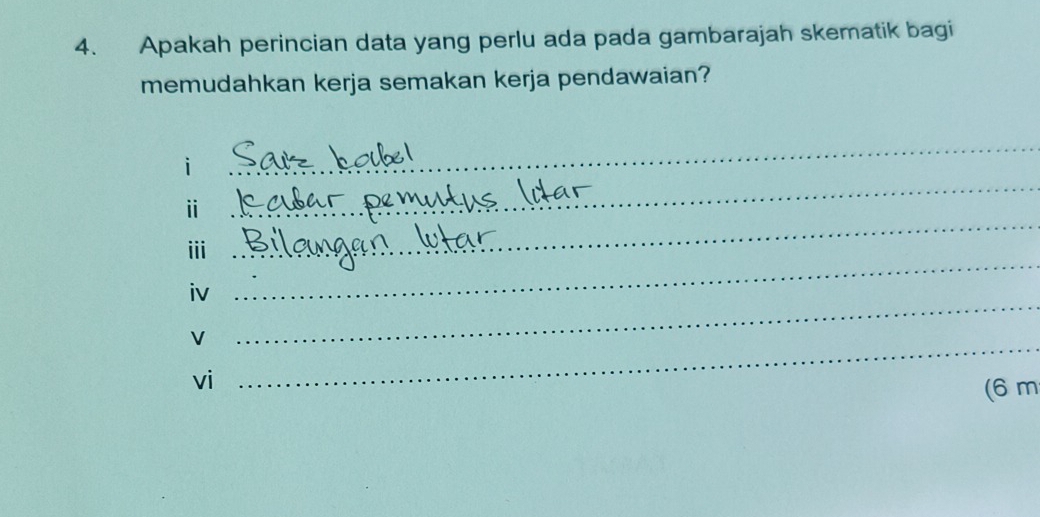 4. Apakah perincian data yang perlu ada pada gambarajah skematik bagi
memudahkan kerja semakan kerja pendawaian?
i Saiz kabel
ii Kadar pemutus litar
iii Bilangan litar
iv
v
vi
(6 m